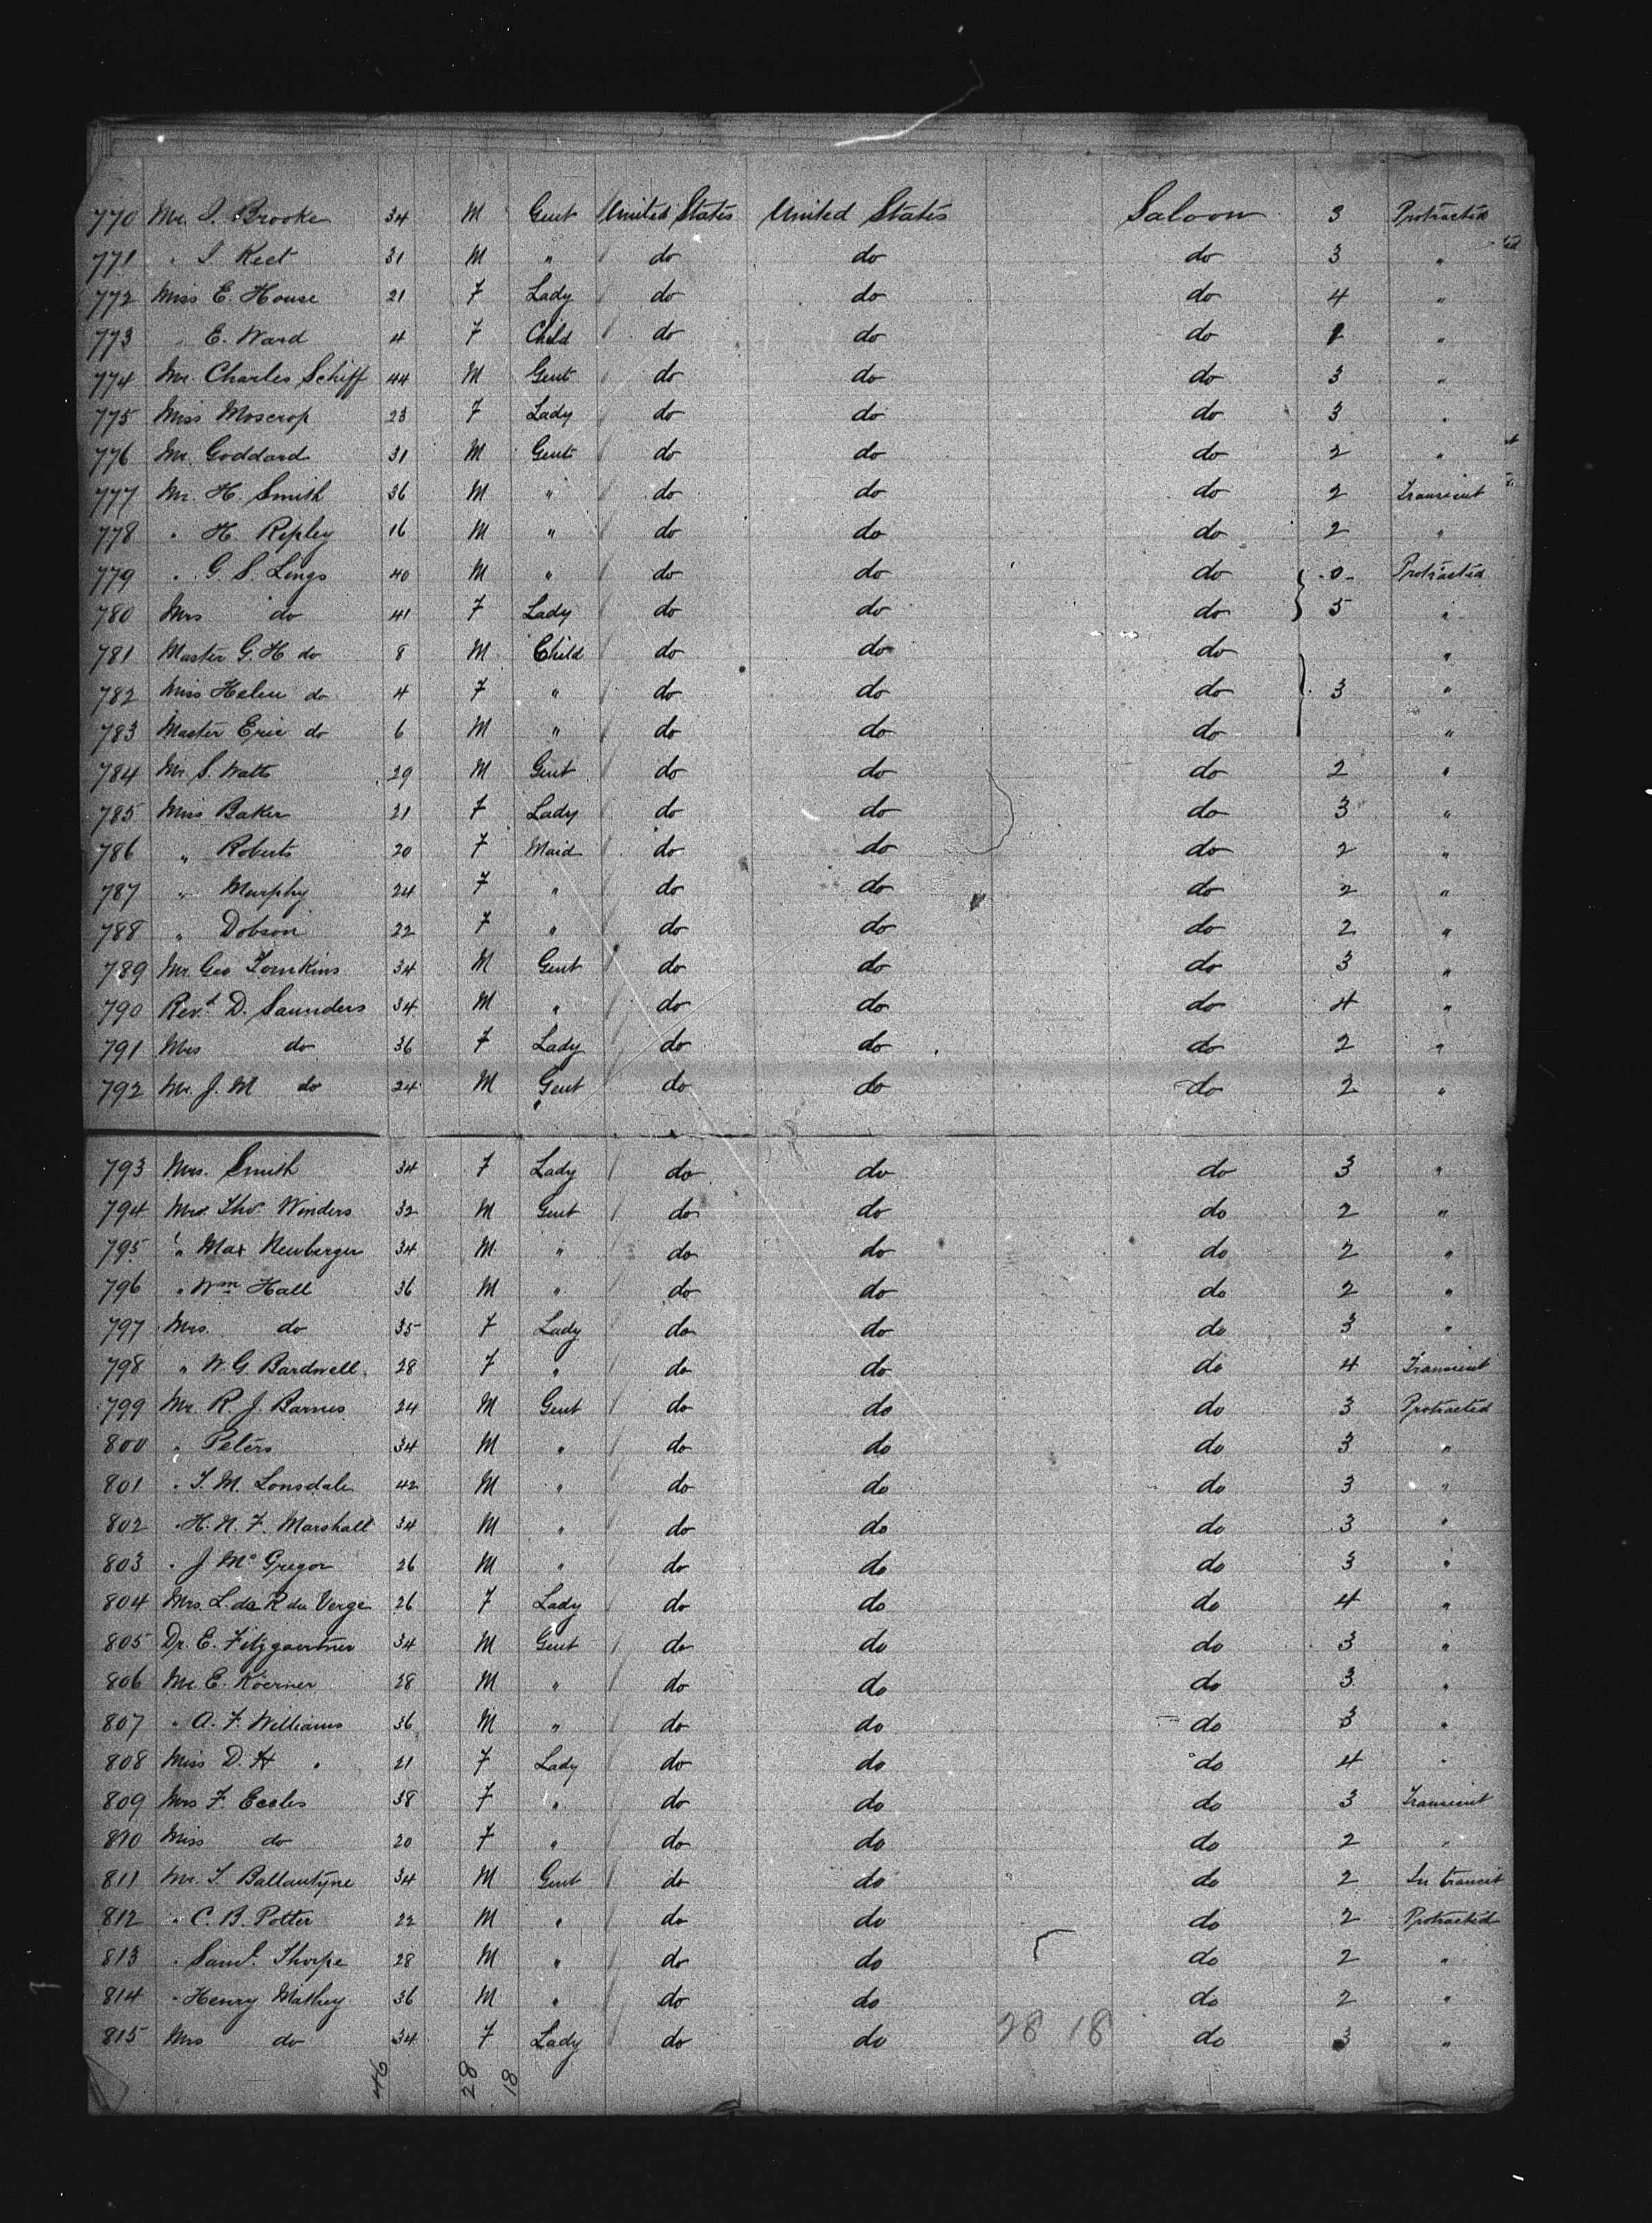 770 Mr. S. Brooke 34 M Gent United States United States Saloon 3 Protracted
771 " S. Keet 31 M " do do do 3 "
772 Miss E. House 21 F Lady do do do 4 "
773 " E. Ward 4 F Child do do do "
774 Mr. Charles Schiff 44 M Gent do do do 3 "
775 Miss Moscrop 23 F Lady do do do 3 "
776 Mr. Goddard 31 M Gent do do do 2 "
777 Mr. H. Smith 36 M " do do do 2 Transient
778 " H. Ripley 16 M " do do do 2 "
779 " G. S. Lings 40 M " do do do 0 Protracted
780 Mrs do 41 F Lady do do do 5 "
781 Master G. H do 8 M Child do do do "
782 Miss Helen do 4 F " do do do 3 "
783 Master Eric do 6 M " do do do "
784 Mr. S. Watts 29 M Gent do do do 2 "
785 Miss Baker 21 F Lady do do do 3 "
786 " Roberts 20 F Maid do do do 2 "
787 " Murphy 24 F " do do do 2 "
788 " Dobson 22 F " do do do 2 "
789 Mr. Geo Tomkins 34 M Gent do do do 3 "
790 Revd. D. Saunders 34 M " do do do 4 "
791 Mrs do 36 F Lady do do do 2 "
792 Mr. J. M do 24 M Gent do do do 2 "
793 Mrs. Smith 34 F Lady do do do 3 "
794 Thos. Winders 32 M Gent do do do 2 "
795 " Max Newberger 34 M " do do do 2 "
796 " Wm Hall 36 M " do do do 2 "
797 Mrs. do 35 F Lady do do do 3 "
798 " W. G. Bardwell. 28 F " do do do 4 Transient
799 Mr. R. J. Barnes 24 M Gent do do do 3 Protracted
800 " Peters 34 M " do do do 3 "
801 " T. M. Lonsdale 42 M " do do do 3 "
802 " H. N. F. Marshall 34 M " do do do 3 "
803 " J Mc Gregor 26 M " do do do 3 "
804 Mrs. L. de R du Verge 26 F Lady do do do 4 "
805 Dr. E. Fitzgaertner 34 M Gent do do do 3 "
806 Mr. E. Koerner 28 M " do do do 3 "
807 " A. F. Williams 36 M " do do do 3 "
808 Miss D. H " 21 F Lady do do do 4 "
809 Mrs F. Eccles 38 F " do do do 3 Transient
810 Miss do 20 F " do do do 2 "
811 Mr. T. Ballantyne 34 M Gent do do do 2 In transit
812 " C. B. Potter 22 M " do do do 2 Protracted
813 " Saml. Thorpe 28 M " do do do 2 "
814 " Henry Mathey 36 M " do do do 2 "
815 Mrs do 34 F Lady do do 28 18 do 3 "
46 28 18